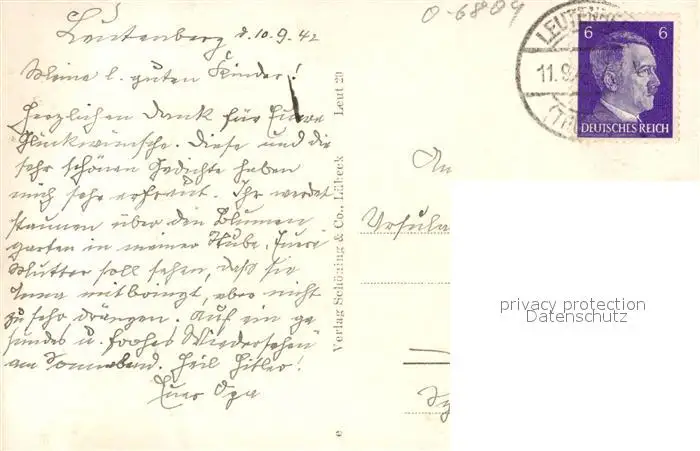 O-6809
Leutenberg d. 10.9.42
Meine l. guten Kinder!
Herzlichen Dank für Eure
Glückwünsche. Diese und die
sehr schönen Gedichte haben
mich sehr erfreut. Ihr werdet
staunen über den Blumen
garten in meiner Stube. Eure
Mutter soll sehen, daß sie
Anna mitbringt, aber nicht
zu sehr drängen. Auf ein ge
sundes u. frohes Wiedersehen
am Sonnabend. Heil Hitler!
Euer Opa
Verlag Schöning & Co., Lübeck Leut 20
e
LEUTENBE
11.9.4
(TH
6 6
DEUTSCHES REICH
An
Ursula
privacy protection
Datenschutz